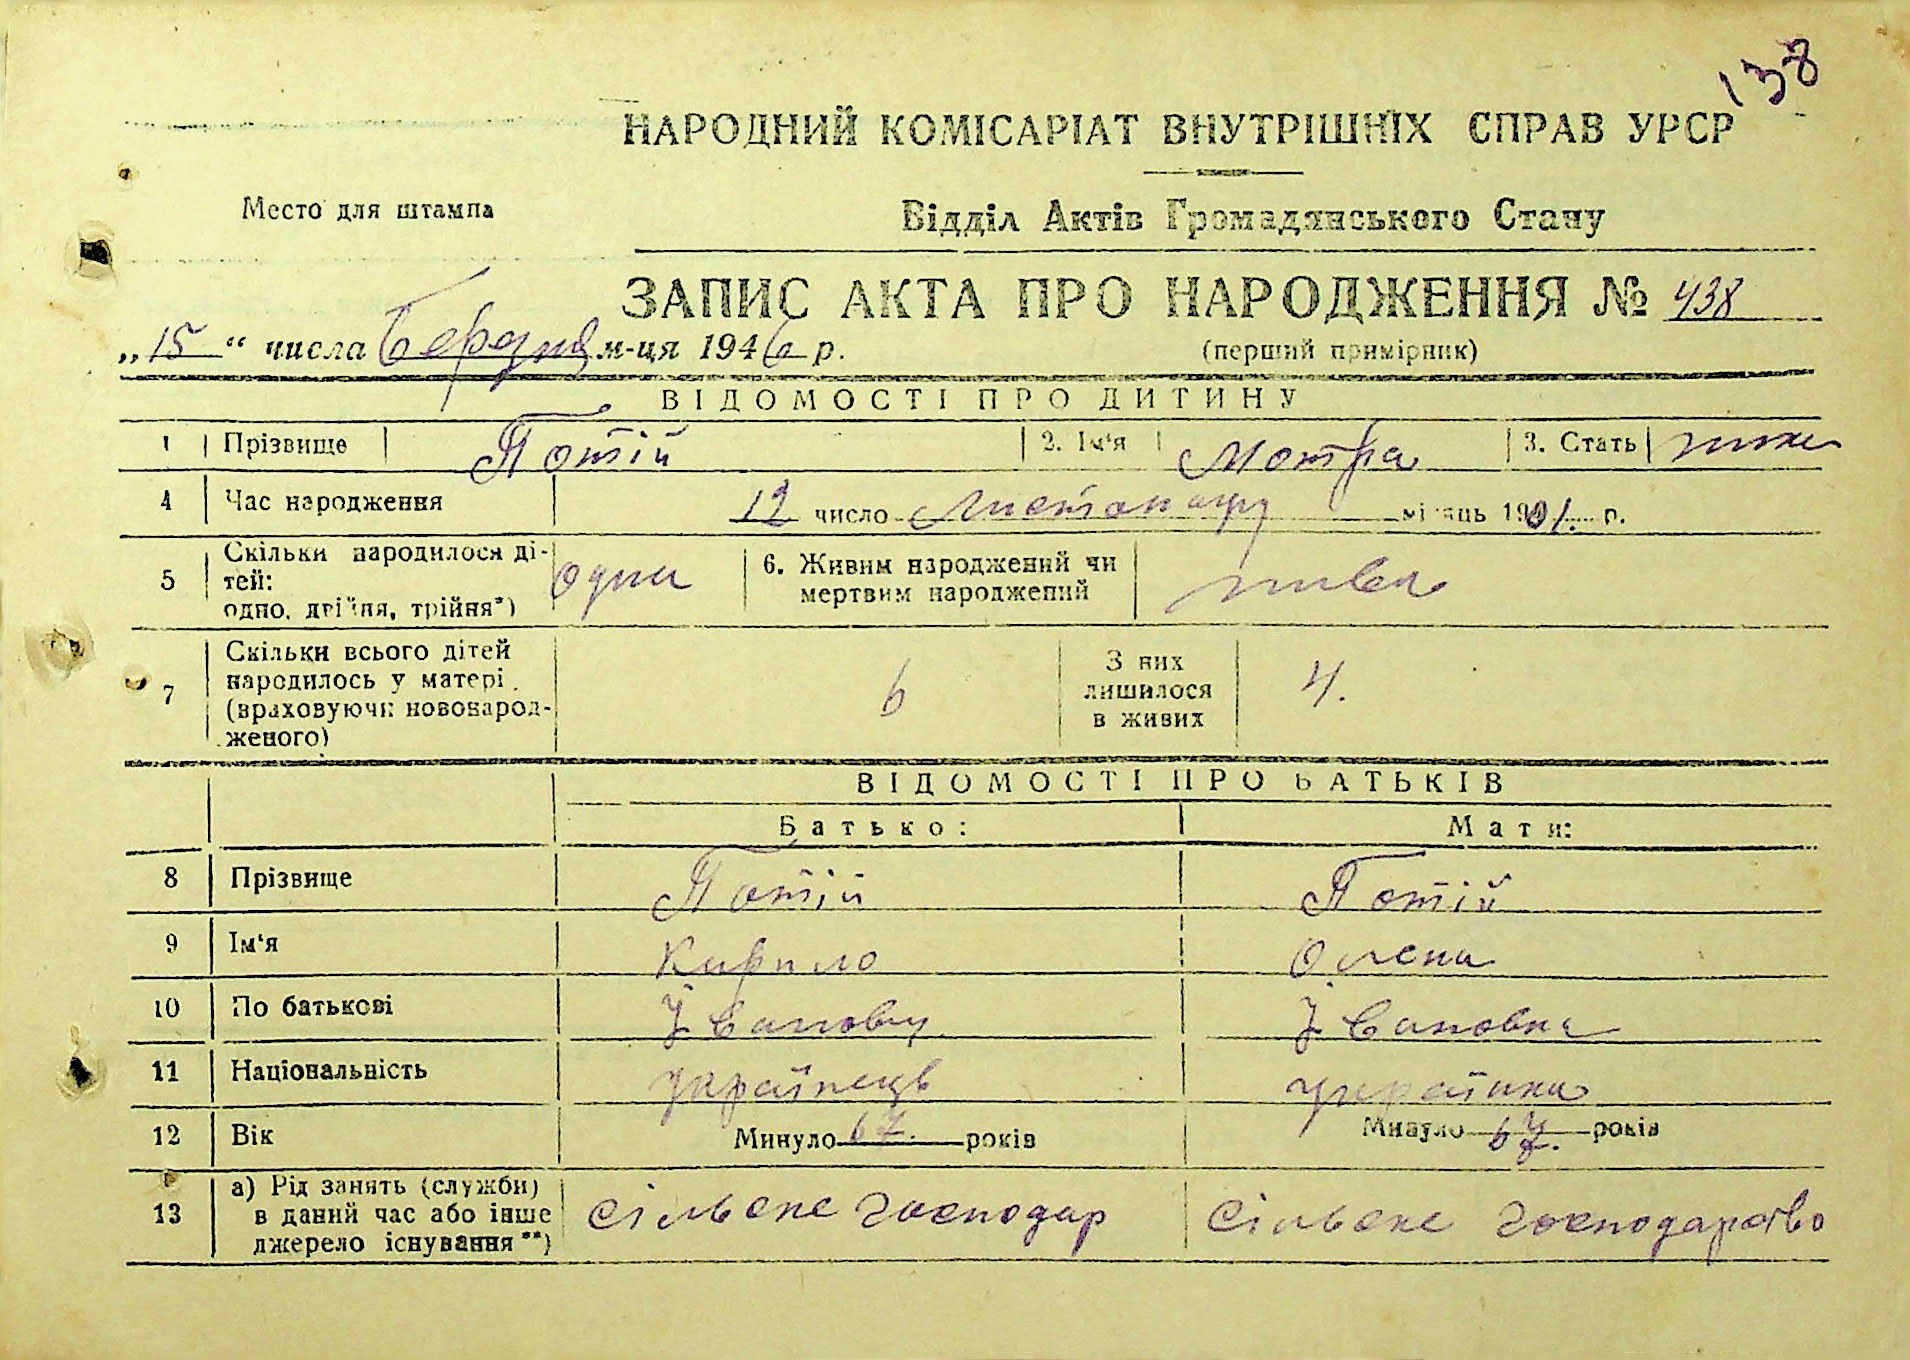 138
НАРОДНИЙ КОМІСАРІАТ ВНУТРІШНІХ СПРАВ УРСР
Место для штампа
Відділ Актів Громадянського Стану
ЗАПИС АКТА ПРО НАРОДЖЕННЯ № 438
„15“ числа Березня м-ця 1946 р.
(перший примірник)
ВІДОМОСТІ ПРО ДИТИНУ
1 Прізвище Потій 2. Ім'я Мотря 3. Стать жін
4 Час народження 12 число Листопаду місяць 1901. р.
5 Скільки народилося ді-
тей:
одно, двійня, трійня*) одна
6. Живим народжений чи
мертвим народжений жива
7 Скільки всього дітей
народилось у матері
(враховуючи новонарод-
женого) 6
З них
лишилося
в живих 4.
ВІДОМОСТІ ПРО БАТЬКІВ
Батько: Мати:
8 Прізвище Потій Потій
9 Ім'я Кирило Олена
10 По батькові Іванович Івановна
11 Національність українець українка
12 Вік Минуло 67. років Минуло 67. років
13 а) Рід занять (служби)
в даний час або інше
джерело існування**) сільське господар сільське господарство